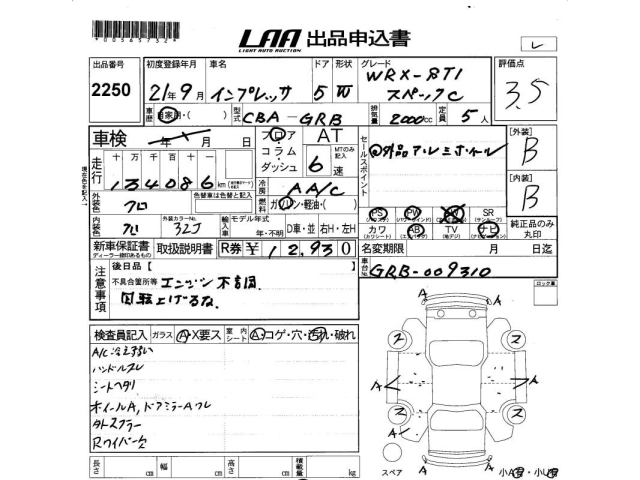 *00565752*
LAA 出品申込書
LIGHT AUTO AUCTION
出品番号 初度登録年月 車名 ドア 形状 グレード 評価点
2250 21年9月 インプレッサ 5 W WRX-STI スペックC 3.5
車歴 自家用・( ) 型式 CBA-GRB 排気量 2000cc 定員 5人
車検 年 月 日 フロア・コラム・ダッシュ AT MTのみ記入 6 速
セールスポイント 外品アルミホイール
[外装] B
走行 十万千百十 134086 km
冷房 AA/C
[内装] B
外装色 クロ 色替車は色替と記入 燃料 ガソリン・軽油・( )
PS PW AW SR
内装色 クロ 外装カラーNo. 32J 輸入車 モデル年式 年・不明 D車・並 右H・左H
カワ AB TV ナビ 純正品のみ丸印
新車保証書 取扱説明書 R券 ¥12,930
ディーラー捺印あるもの
名変期限 月 日迄
車台No. GRB-009310
注意事項 後日品【
不具合箇所等 エンジン不調.
回転上げるな.
ロック車
検査員記入 ガラス A・X要ス 室内シート A・コゲ・穴・汚れ・破れ
A/C冷え弱い
ハンドルスレ
シートヘタリ
ホイールA,ドアミラーAワレ
Rワイパー欠
A A
2 2
A A
2 2
A A
長さ cm 幅 cm 高さ cm 積載量 kg
スペア 小A・小U